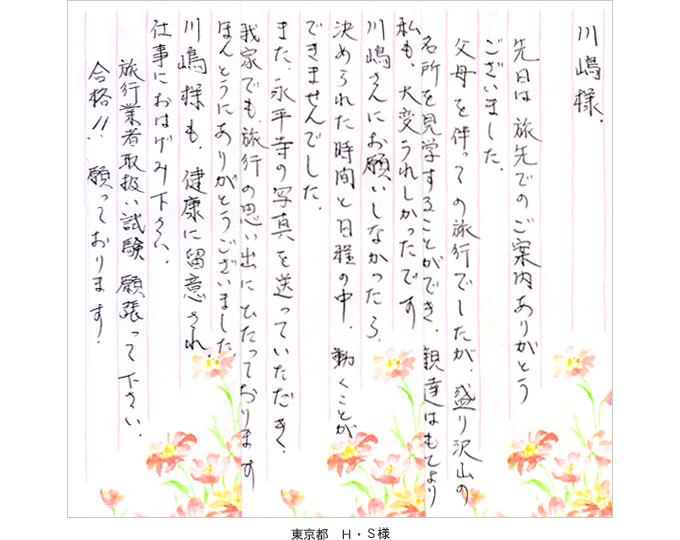 川嶋様.
先日は旅先でのご案内ありがとう
ございました.
父母を伴っての旅行でしたが、盛り沢山の
名所を見学することができ、親達はもとより
私も、大変うれしかったです
川嶋さんにお願いしなかったら、
決められた時間と日程の中、動くことが
できませんでした.
また、永平寺の写真を送っていただき、
我家でも、旅行の思い出にひたっております
ほんとうにありがとうございました.
川嶋様も、健康に留意され、
仕事におはげみ下さい、
旅行業者取扱い試験 願張って下さい.
合格!! 願っております.
東京都　H・S様